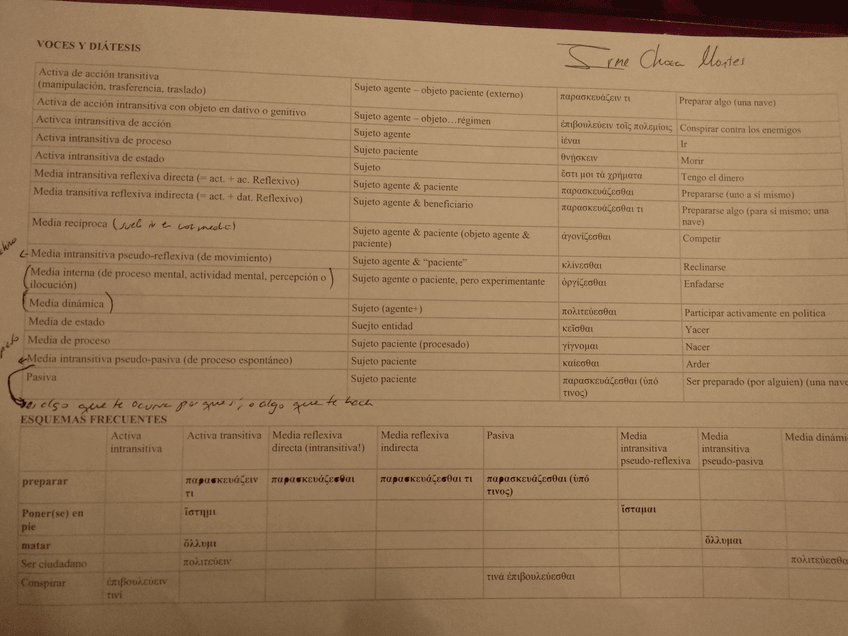 VOCES Y DIÁTESIS
Activa de acción transitiva
(manipulación, trasferencia, traslado) Sujeto agente – objeto paciente (externo) παρασκευάζειν τι Preparar algo (una nave)
Activa de acción intransitiva con objeto en dativo o genitivo Sujeto agente – objeto…régimen ἐπιβουλεύειν τοῖς πολεμίοις Conspirar contra los enemigos
Activca intransitiva de acción Sujeto agente ἰέναι Ir
Activa intransitiva de proceso Sujeto paciente θνήσκειν Morir
Activa intransitiva de estado Sujeto ἔστι μοι τὰ χρήματα Tengo el dinero
Media intransitiva reflexiva directa (= act. + ac. Reflexivo) Sujeto agente & paciente παρασκευάζεσθαι Prepararse (uno a sí mismo)
Media transitiva reflexiva indirecta (= act. + dat. Reflexivo) Sujeto agente & beneficiario παρασκευάζεσθαι τι Prepararse algo (para sí mismo; una
nave)
Media recíproca Sujeto agente & paciente (objeto agente &
paciente) ἀγονίζεσθαι Competir
Media intransitiva pseudo-reflexiva (de movimiento) Sujeto agente & “paciente” κλίνεσθαι Reclinarse
Media interna (de proceso mental, actividad mental, percepción o
ilocución) Sujeto agente o paciente, pero experimentante ὀργίζεσθαι Enfadarse
Media dinámica Sujeto (agente+) πολιτεύεσθαι Participar activamente en política
Media de estado Suejto entidad κεῖσθαι Yacer
Media de proceso Sujeto paciente (procesado) γίγνομαι Nacer
Media intransitiva pseudo-pasiva (de proceso espontáneo) Sujeto paciente καίεσθαι Arder
Pasiva Sujeto paciente παρασκευάζεσθαι (ὑπό
τινος) Ser preparado (por alguien) (una nave
algo que te ocurre por que sí, o algo que te hacen
ESQUEMAS FRECUENTES
Activa
intransitiva Activa transitiva Media reflexiva
directa (intransitiva!) Media reflexiva
indirecta Pasiva Media
intransitiva
pseudo-reflexiva Media
intransitiva
pseudo-pasiva Media dinámi
preparar παρασκευάζειν
τι παρασκευάζεσθαι παρασκευάζεσθαι τι παρασκευάζεσθαι (ὑπό
τινος)
Poner(se) en
pie ἵστημι ἵσταμαι
matar ὄλλυμι ὄλλυμαι
Ser ciudadano πολιτεύειν πολιτεύεσθα
Conspirar ἐπιβουλεύειν
τινί τινά ἐπιβουλεύεσθαι